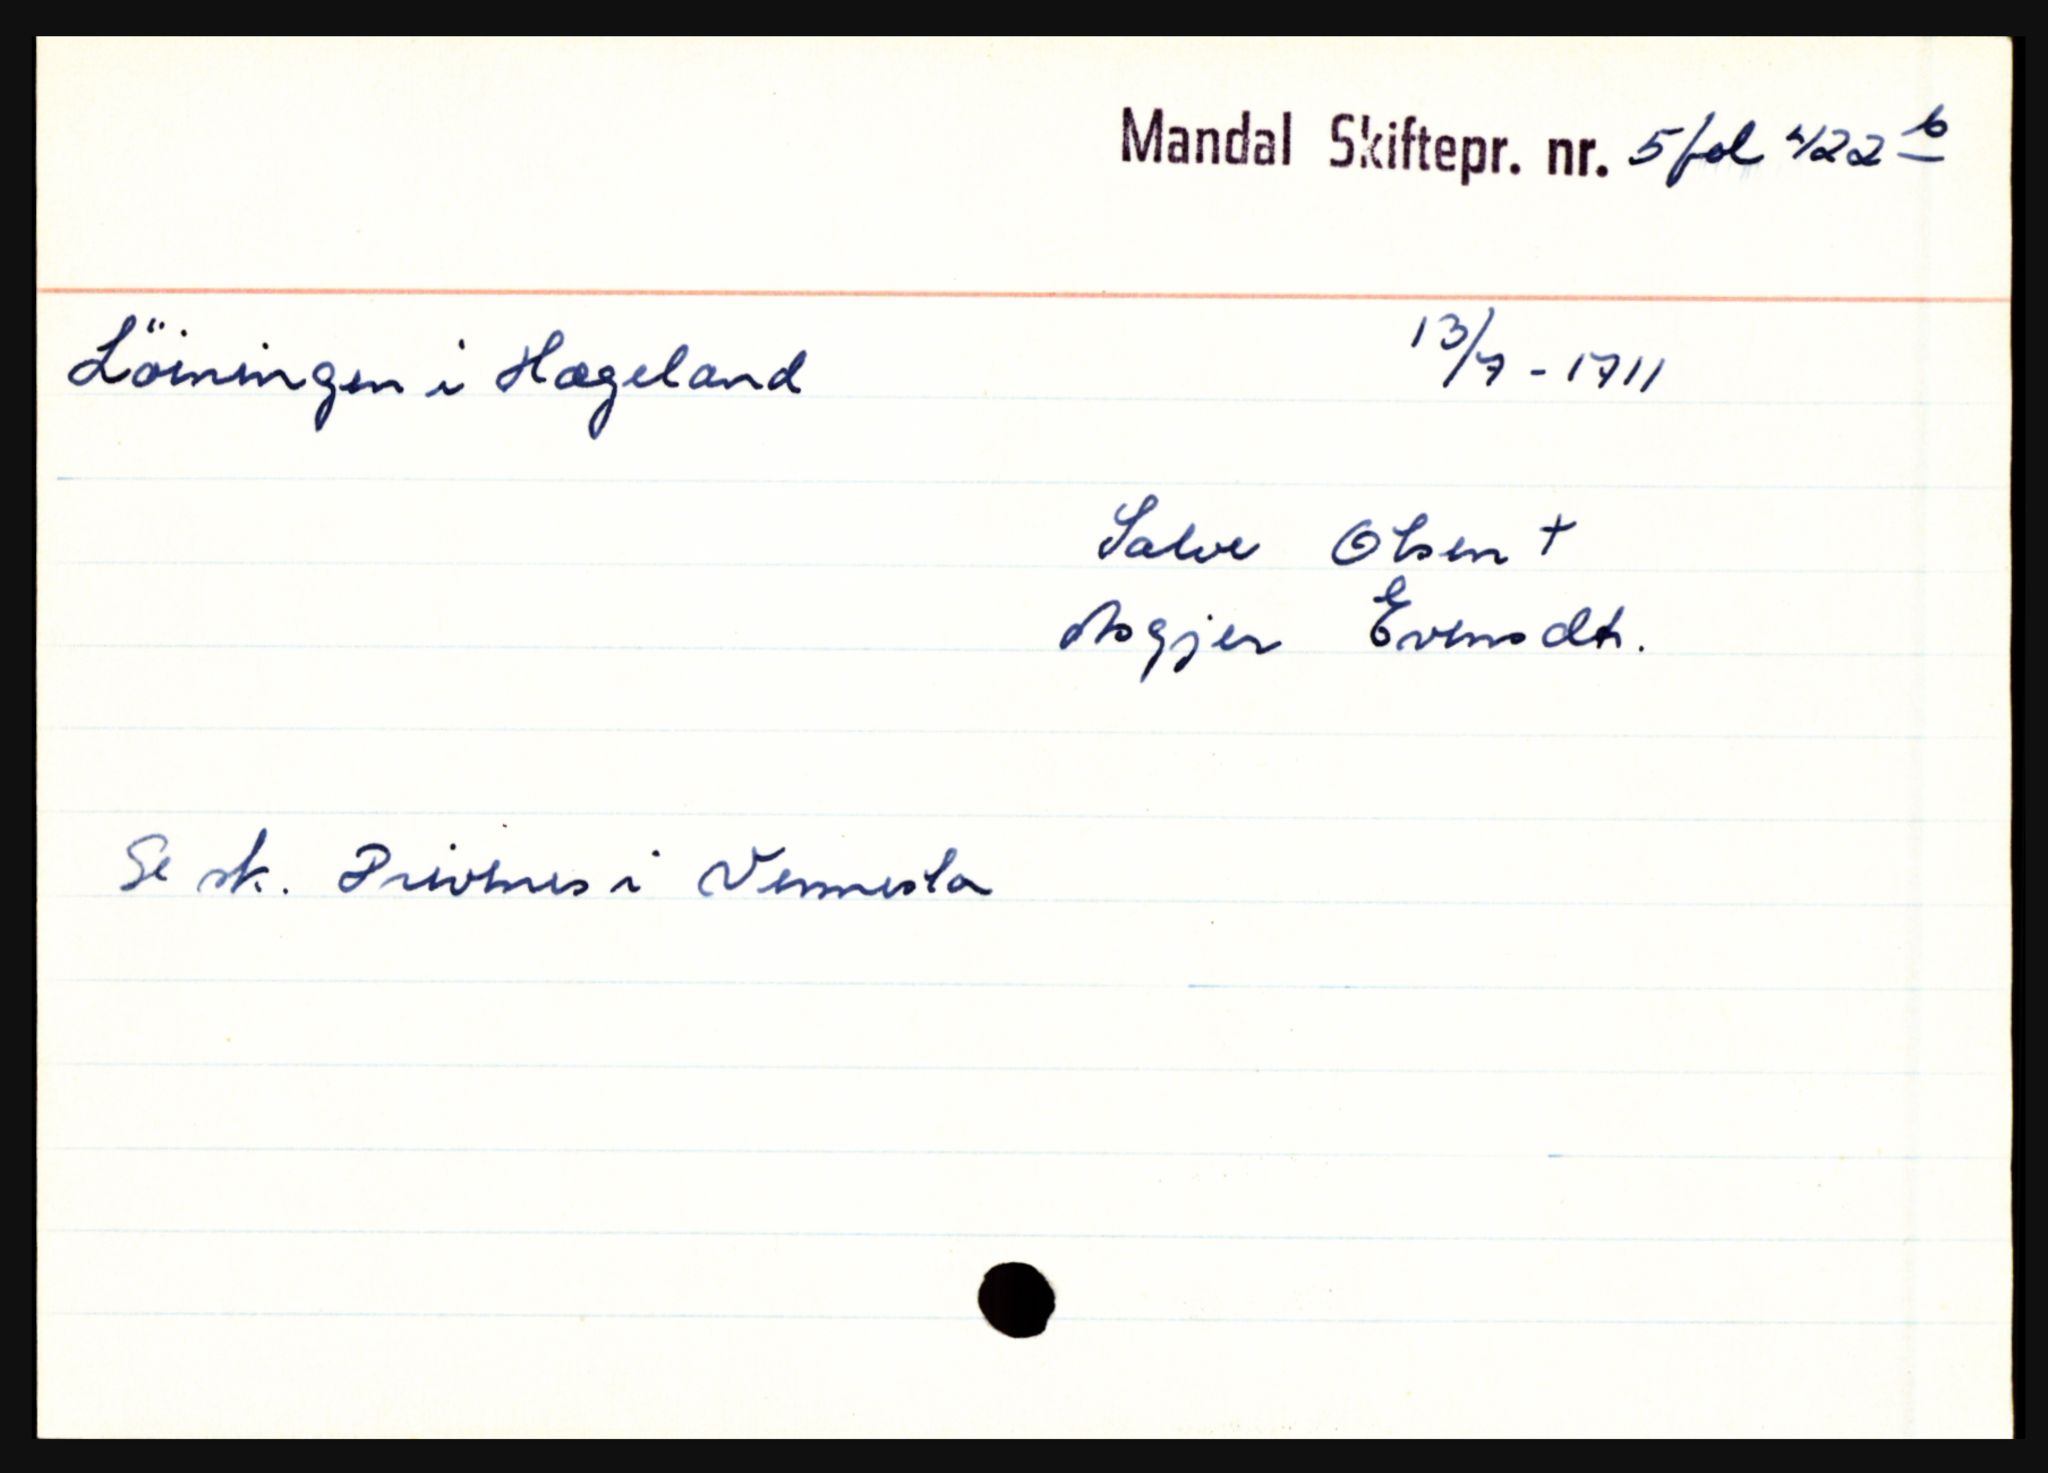 Mandal Skiftepr. nr. 5 fol 422 b
Löiningen i Hægeland 13/7 - 1711
Salve Olsen +
Asgjer Evensdt.
Se sk. Drivenes i Vennesla